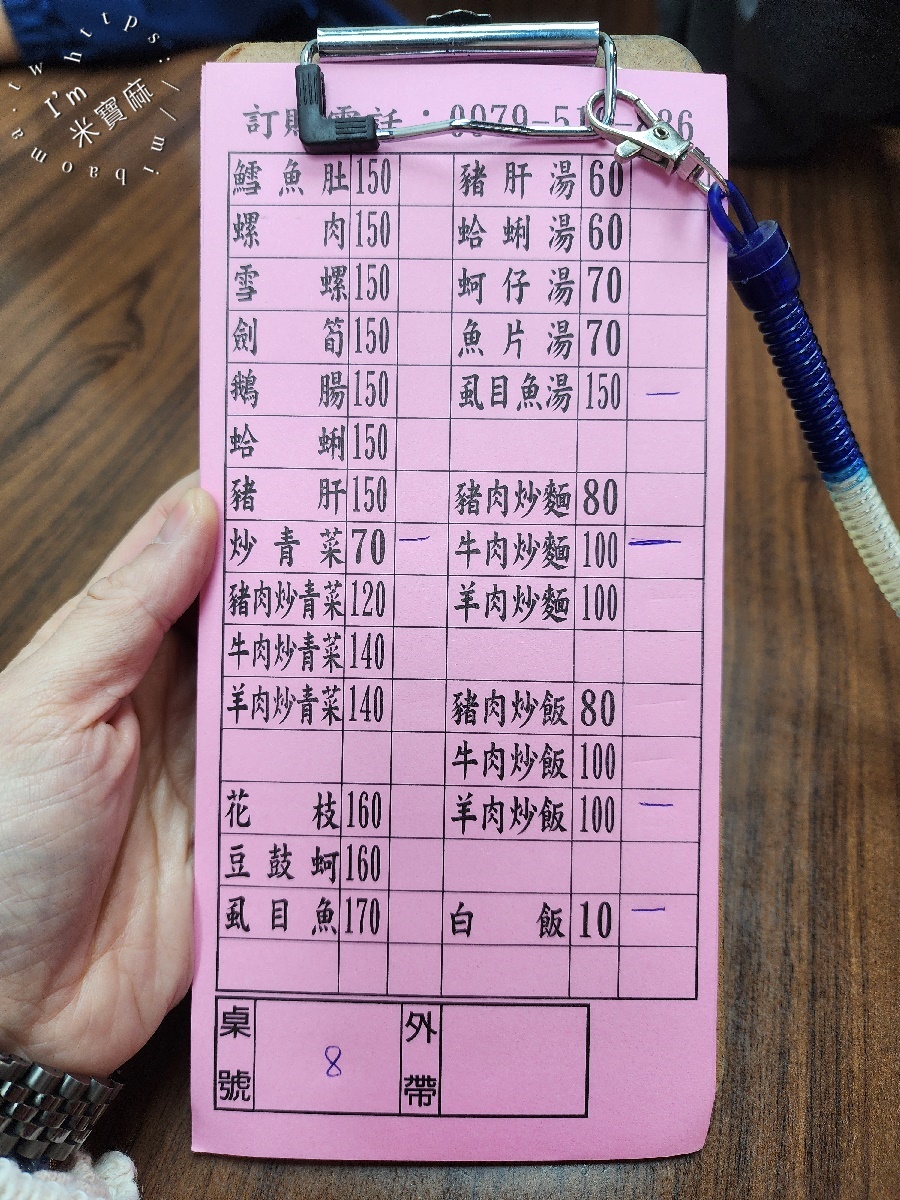 https:
//mibao
a.tw
I'm
米寶麻
鱈魚肚 150 豬肝湯 60
螺肉 150 蛤蜊湯 60
雪螺 150 蚵仔湯 70
劍筍 150 魚片湯 70
鵝腸 150 虱目魚湯 150 一
蛤蜊 150
豬肝 150 豬肉炒麵 80
炒青菜 70 一 牛肉炒麵 100 一
豬肉炒青菜 120 羊肉炒麵 100
牛肉炒青菜 140
羊肉炒青菜 140 豬肉炒飯 80
牛肉炒飯 100
花枝 160 羊肉炒飯 100 一
豆鼓蚵 160
虱目魚 170 白飯 10 一
桌號 8 外帶